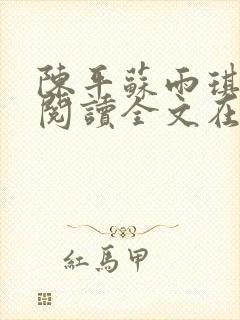 陳平蘇雨琪
閱讀全文在
紅馬甲